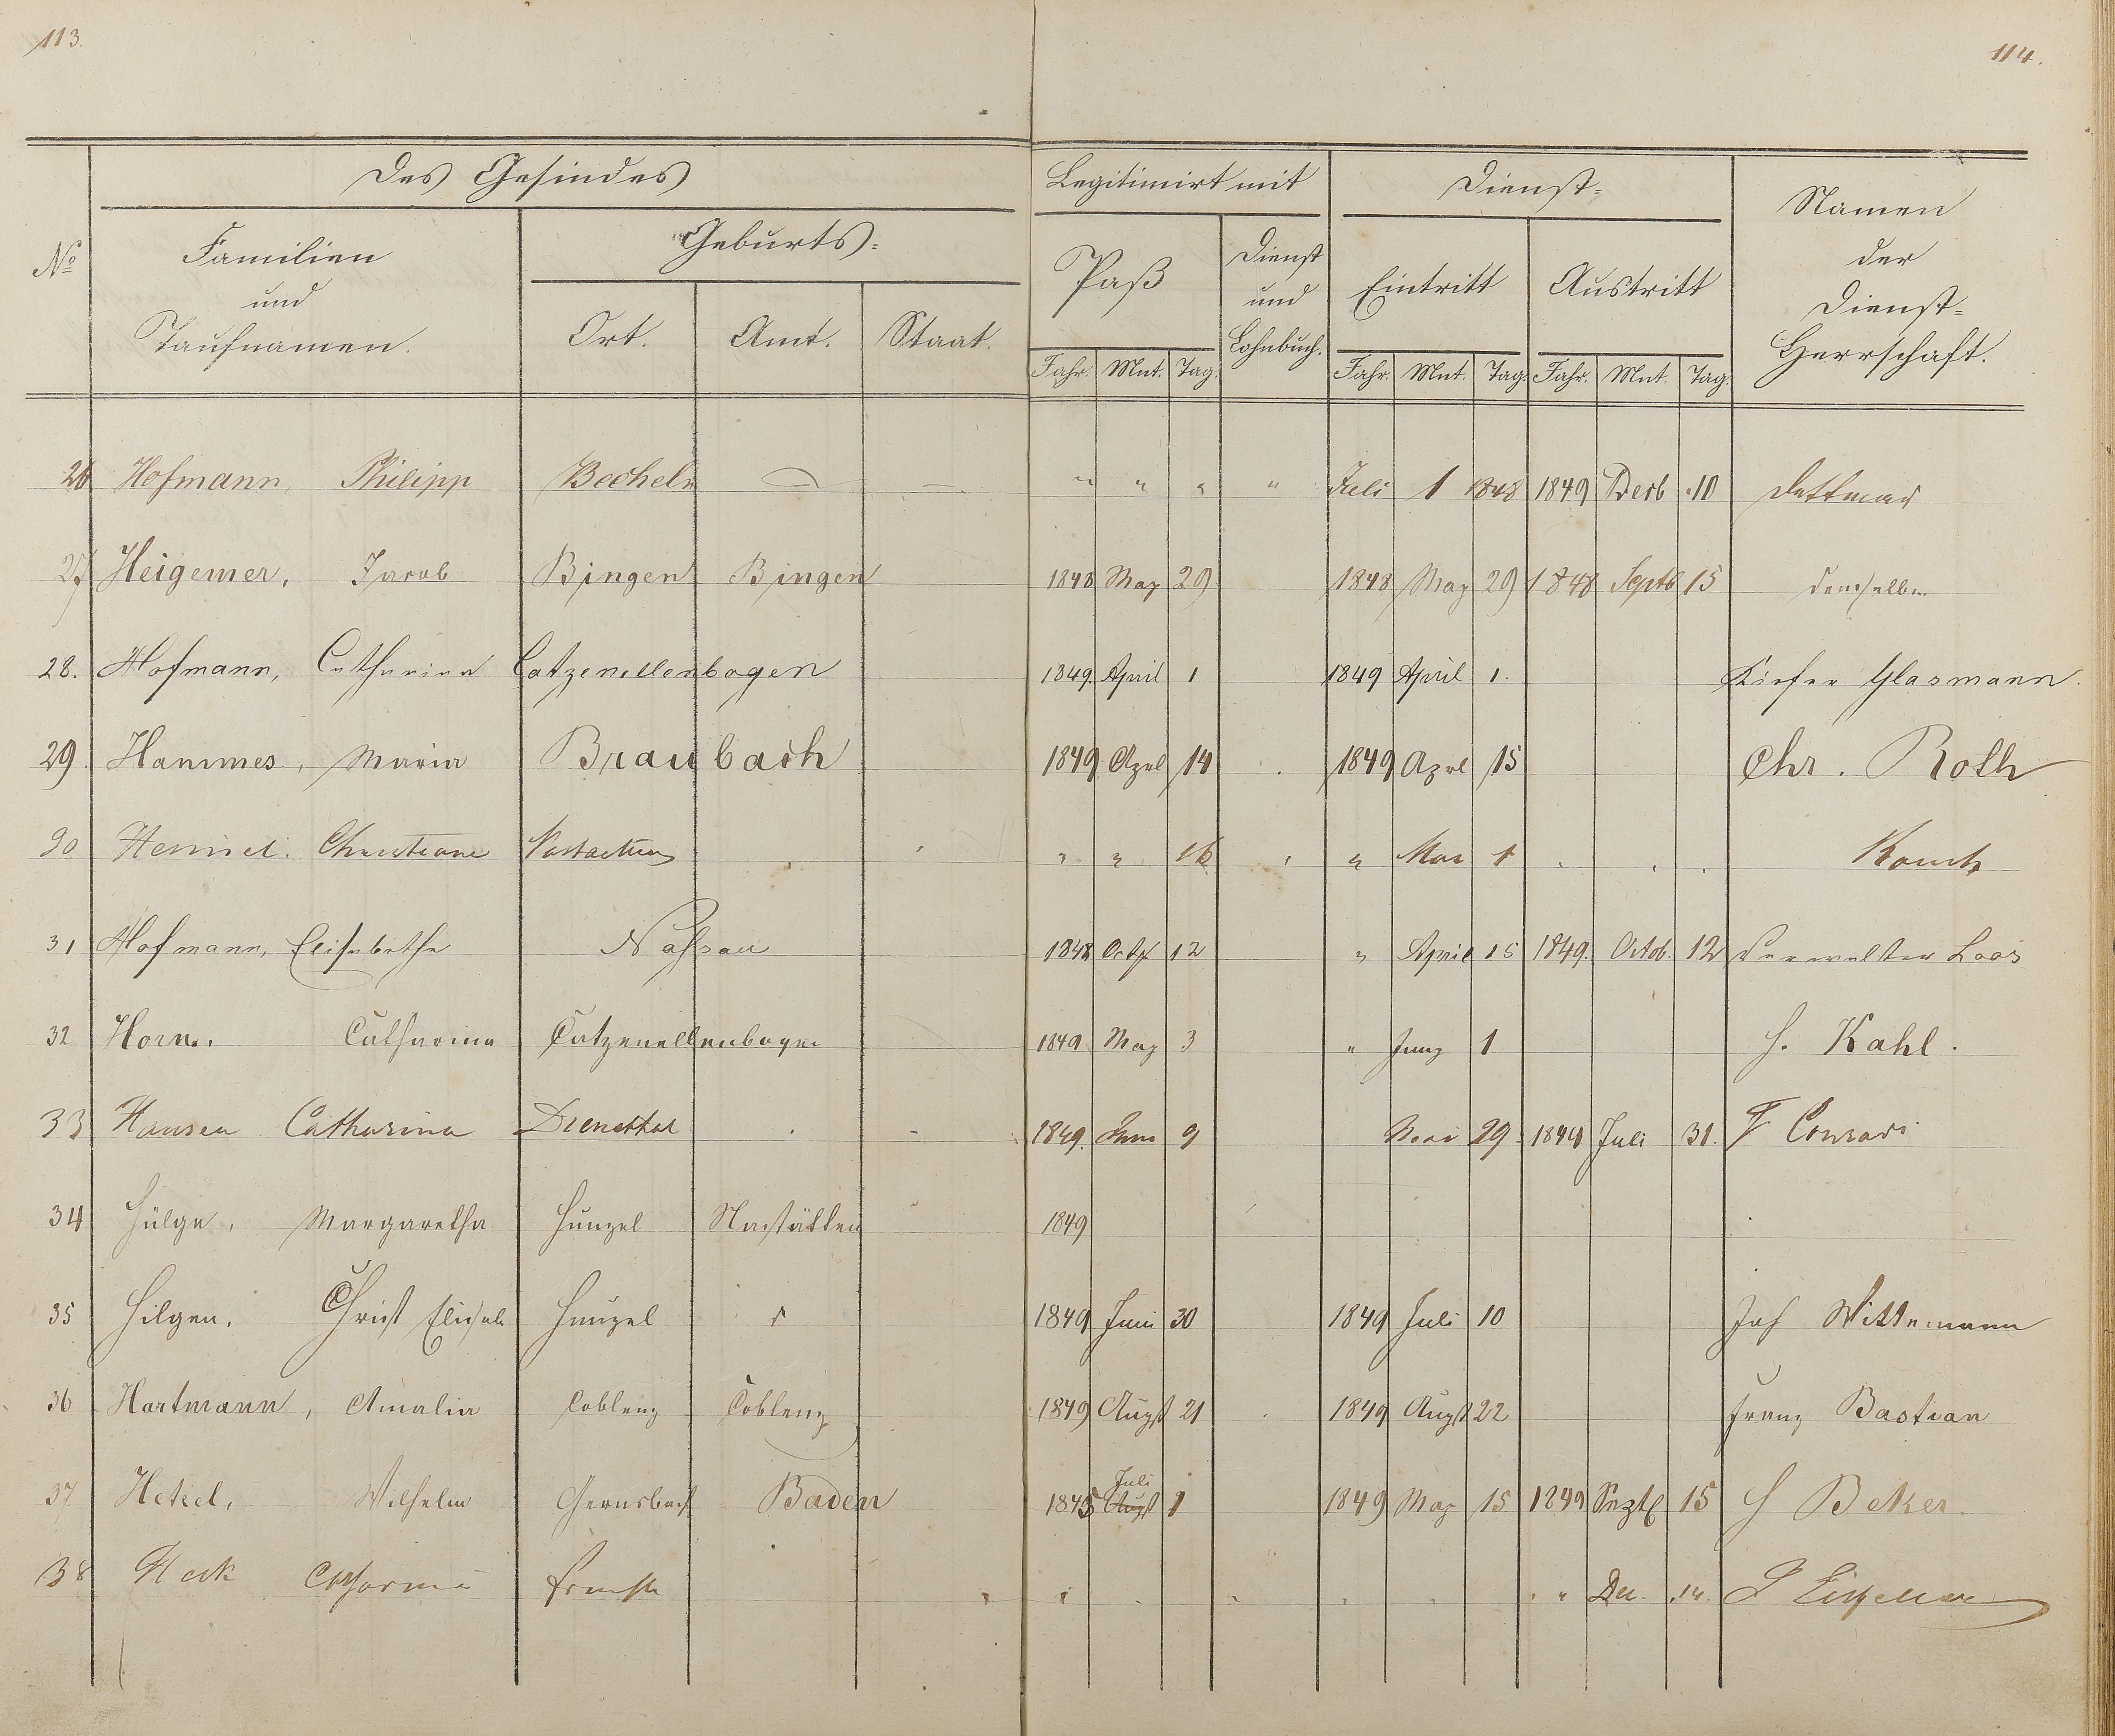 113.
114.
Des Gesindes
Legitimirt mit
Dienst-
Namen
der
Dienst-
Herrschaft.
No
Familien
und
Taufnamen.
Geburts-
Ort. Amt. Staat.
Paß
Dienst
und
Lohnbuch.
Eintritt
Austritt
Jahr. Mnt. Tag. Jahr. Mnt. Tag. Jahr. Mnt. Tag.
26 Hofmann, Philipp Becheln — — " " " " Juli 1 1848 1849 10 Dettmar
27 Heigemer, Jacob Bingen Bingen 1848 May 29 1848 May 29 1848 Septb 15 demselben
28. Hofmann, Catharina Catzenellenbogen 1849. April 1 1849 April 1. Kiefer Glasmann.
29. Hammes, Maria Braubach 1849 Aprl 14 1849 Aprl 15 Chr. Roth
30 Christiane " " 16 " Mai 1
31 Hofmann, Elisabetha Nassau 1848 12 " April 15 1849. Octob. 12 Verwalter Loos
32 Horn, Catharina Catzenellenbogen 1849 May 3 " Juny 1 H. Kahl.
33 Hansen Catharina Dienethal 1849. Juni 9 29 1849 Juli 31. F Conradi
34 Hülge, Margaretha Hunzel Nastätten 1849
35 Hilgen, Christ Elisab Hunzel " 1849 Juni 30 1849 Juli 10 Joh Wittemann
36 Hartmann, Amalia Coblenz Coblenz 1849 Augst 21 1849 Augst 22 Franz Bastian
Juli
37 Hekel, Wilhelm Gernsbach Baden 1845 Augst 1 1849 May 15 1849 Septb 15 H Beker.
38 " Dec. 14